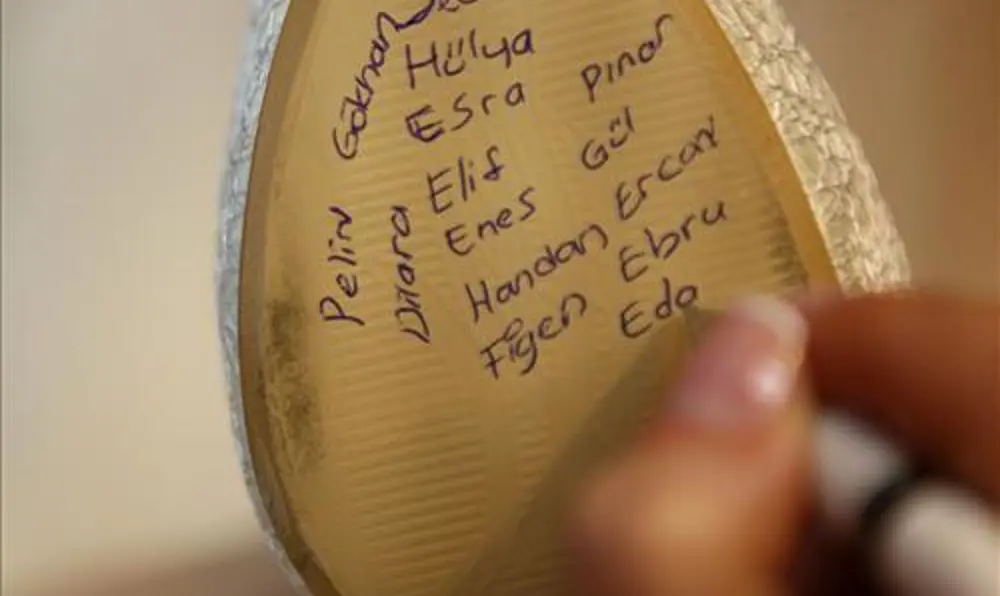 Gökhan
Hülya
Esra
Elif
Enes
Handan
Figen
Pınar
Gül
Ercan
Ebru
Eda
Pelin
Dilara